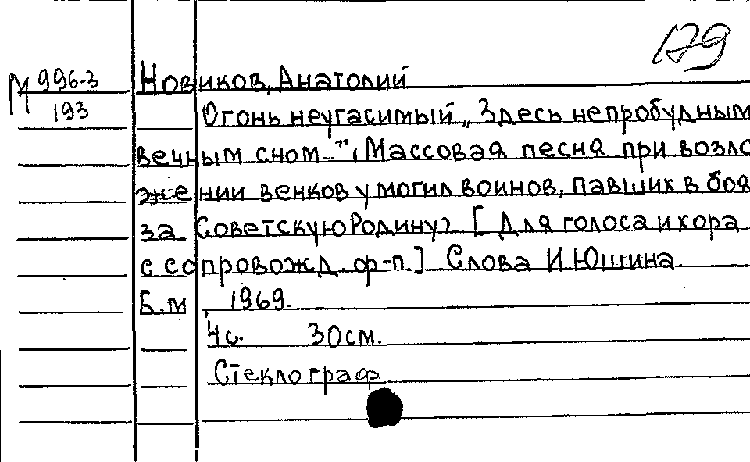 179
М 996-3
193
Новиков, Анатолий
Огонь неугасимый „Здесь непробудным
вечным сном..." (Массовая песня при возло
жении венков у могил воинов, павших в боя
за Советскую Родину) [Для голоса и хора
с сопровожд. ф-п.] Слова И. Юшина.
Б.м., 1969.
4с. 30см.
Стеклограф